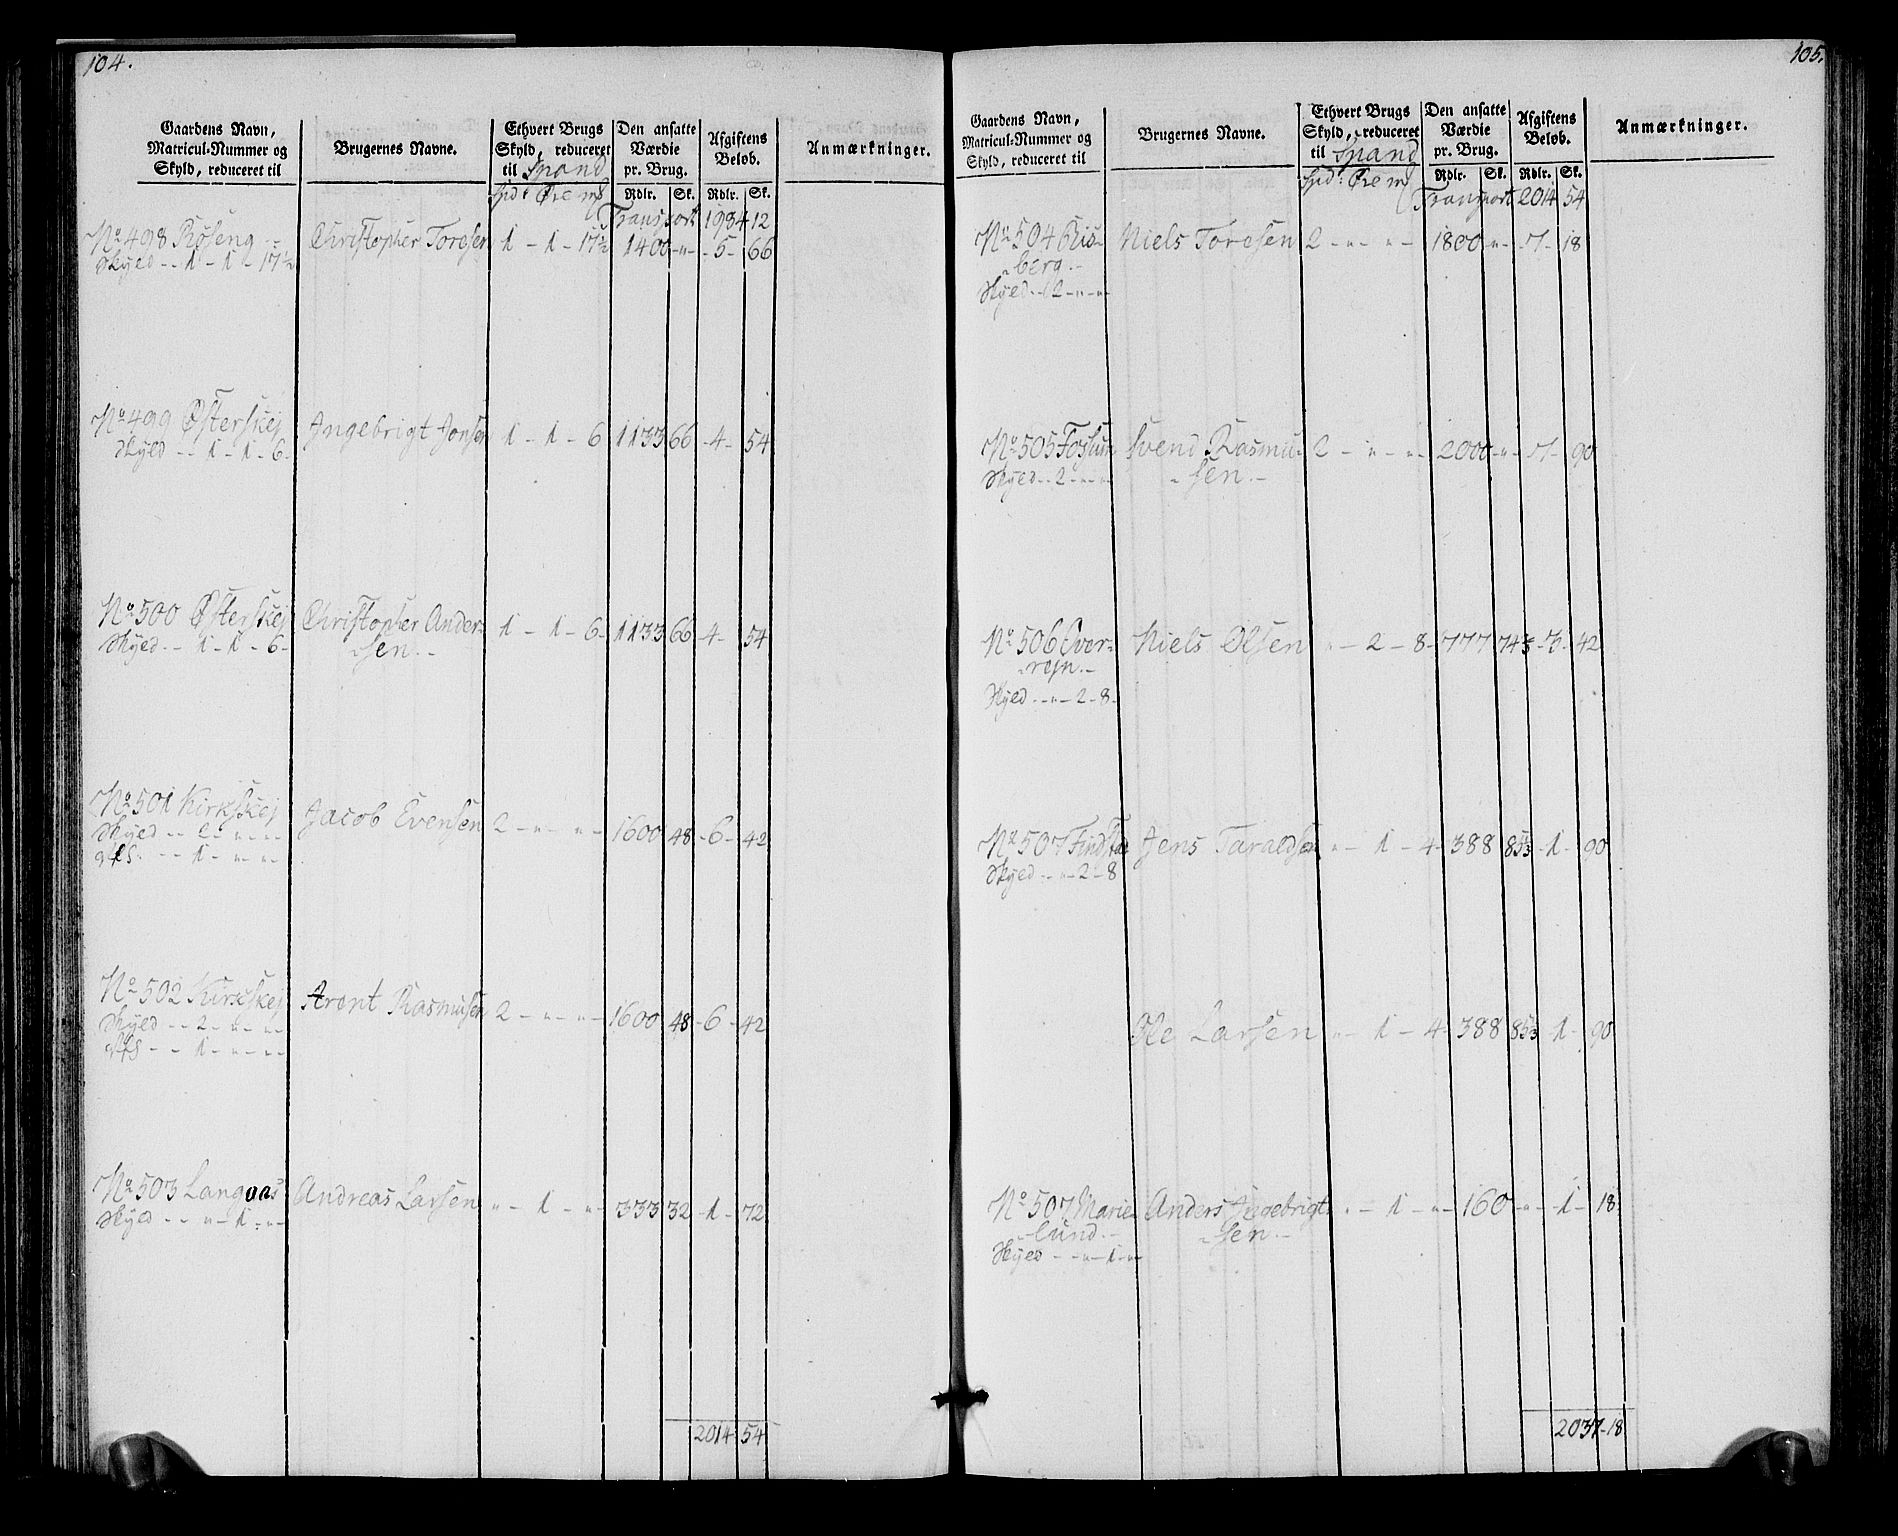 104.
Gaardens Navn, Matricul-Nummer og Skyld, reduceret til
Brugernes Navne.
Ethvert Brugs Skyld, reduceret til Spand
Den ansatte Værdie pr. Brug.
Afgiftens Beløb.
Anmærkninger.
Spd: Øre mſ Rdlr. Sk. Rdlr. Sk.
Transport 1984 12
No 498 Røseng Christopher Toresen 1 - 1 - 17½ 1400 - " - 5 - 66
Skyld - - 1 - 1 - 17½
No 499 Østerskej Ingebrigt Jonsen 1 - 1 - 6 1133 66 - 4 - 54
Skyld - - 1 - 1 - 6 -
No 500 Østerskej Christopher Ander- 1 - 1 - 6 - 1133 66 - 4 - 54
Skyld - - 1 - 1 - 6 - sen. -
No 501 Kirkskej Jacob Evensen 2 - " - " - 1600 48 - 6 - 42
Skyld - - 2 - " - " -
- - 1 - " - " -
No 502 Kirkskej Arent Rasmusen 2 - " - " - 1600 48 - 6 - 42
Skyld - - 2 - " - " -
- - 1 - " - " -
No 503 Langaas Andreas Larsen " - 1 - " - 333 32 - 1 - 72
Skyld - - " - 1 - " -
2014 54
105.
Gaardens Navn, Matricul-Nummer og Skyld, reduceret til
Brugernes Navne.
Ethvert Brugs Skyld, reduceret til Spand
Den ansatte Værdie pr. Brug.
Afgiftens Beløb.
Anmærkninger.
Spd: Øre mſ Rdlr. Sk. Rdlr. Sk.
Transport 2014 54
No 504 Ris- Niels Toresen 2 - " - " - 1800 - " - 7 - 18
berg. -
Skyld - - 2 - " - "
No 505 Fossum Svend Rasmu- 2 - " - " - 2000 - " - 7 - 90
Skyld - - 2 - " - " - sen. -
No 506 Over- Niels Olsen " - 2 - 8 - 777 74⅔ - 3 - 42
Skyld - - " - 2 - 8 -
No 507 Findstad Jens Taraldsen " - 1 - 4 - 388 85⅓ - 1 - 90
Skyld - - " - 2 - 8
Ole Larsen " - 1 - 4 - 388 85⅓ - 1 - 90
No 507 Marie- Anders Ingebrigt- " - 1 - " - 160 - " - 1 - 18
lund. - sen. -
Skyld - - " - 1 - "
2037 - 18